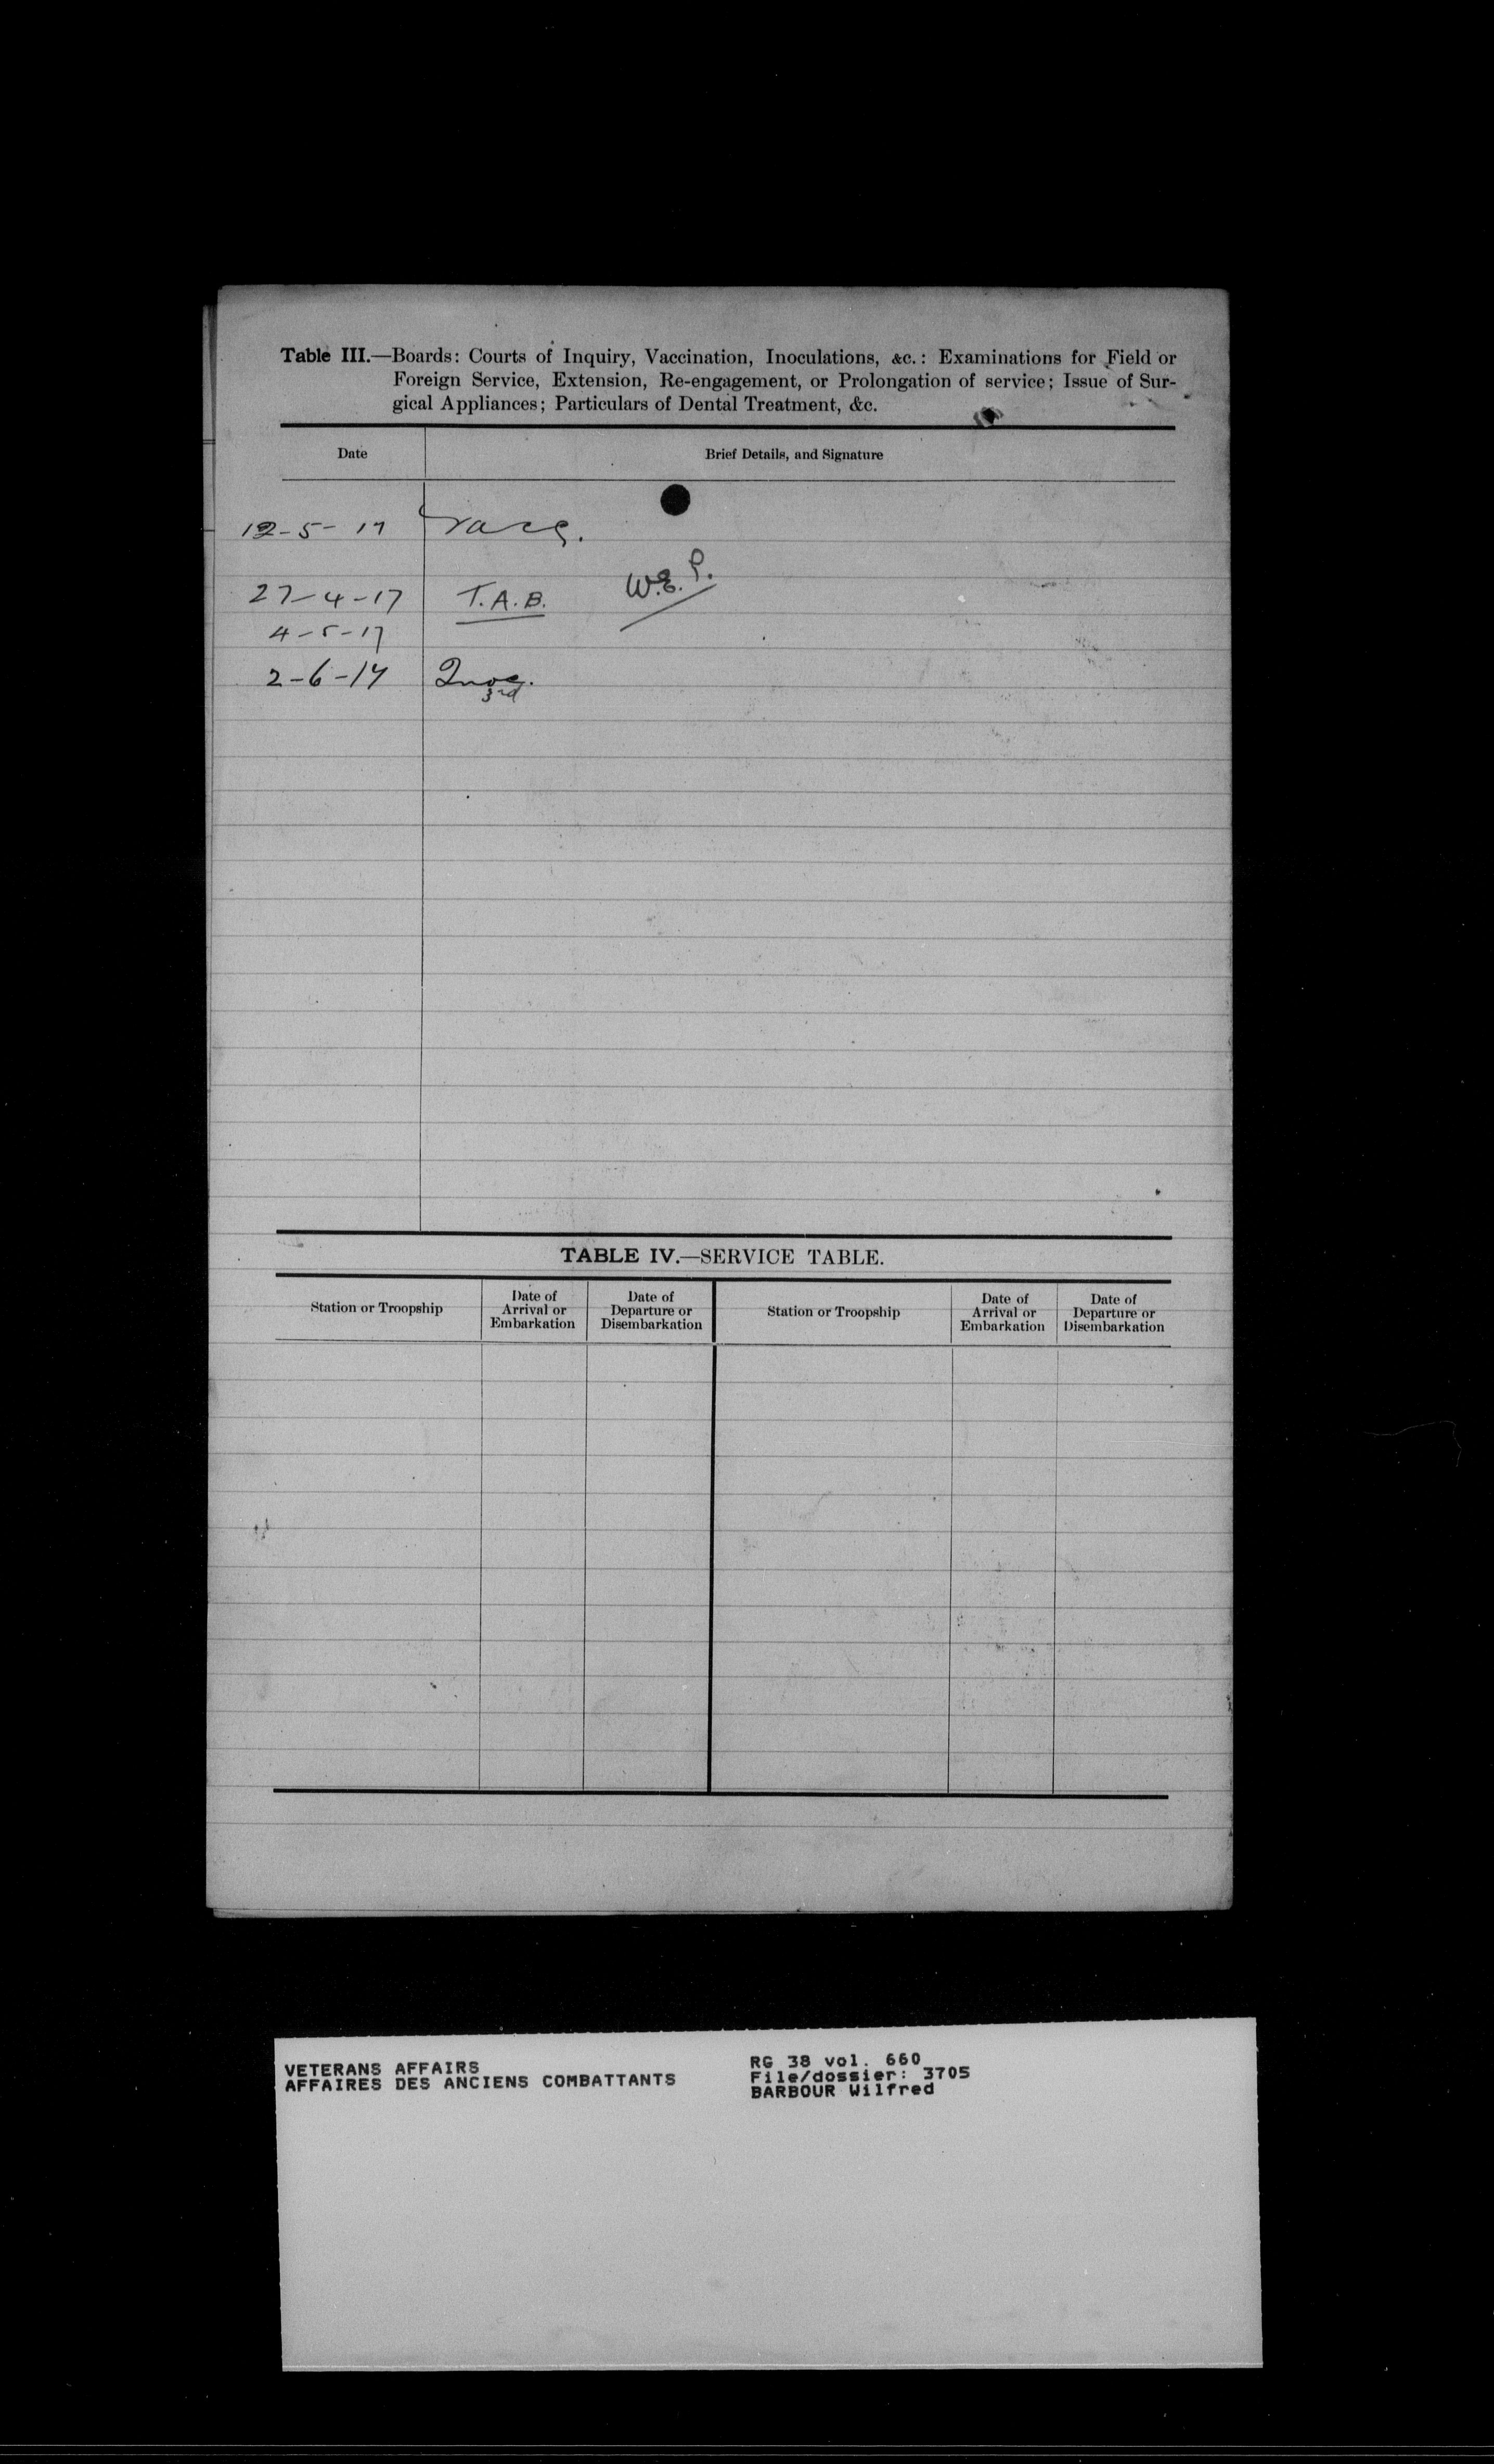 Table III.—Boards: Courts of Inquiry, Vaccination, Inoculations, &c.: Examinations for Field or
Foreign Service, Extension, Re-engagement, or Prolongation of service; Issue of Sur-
gical Appliances; Particulars of Dental Treatment, &c.
Date Brief Details, and Signature
12-5-17 Vacc.
27-4-17 T.A.B. W.E.P.
4-5-17
2-6-17 Inoc.
3rd
TABLE IV.—SERVICE TABLE.
Station or Troopship Date of Arrival or Embarkation Date of Departure or Disembarkation Station or Troopship Date of Arrival or Embarkation Date of Departure or Disembarkation
VETERANS AFFAIRS RG 38 vol. 660
AFFAIRES DES ANCIENS COMBATTANTS File/dossier: 3705
BARBOUR Wilfred